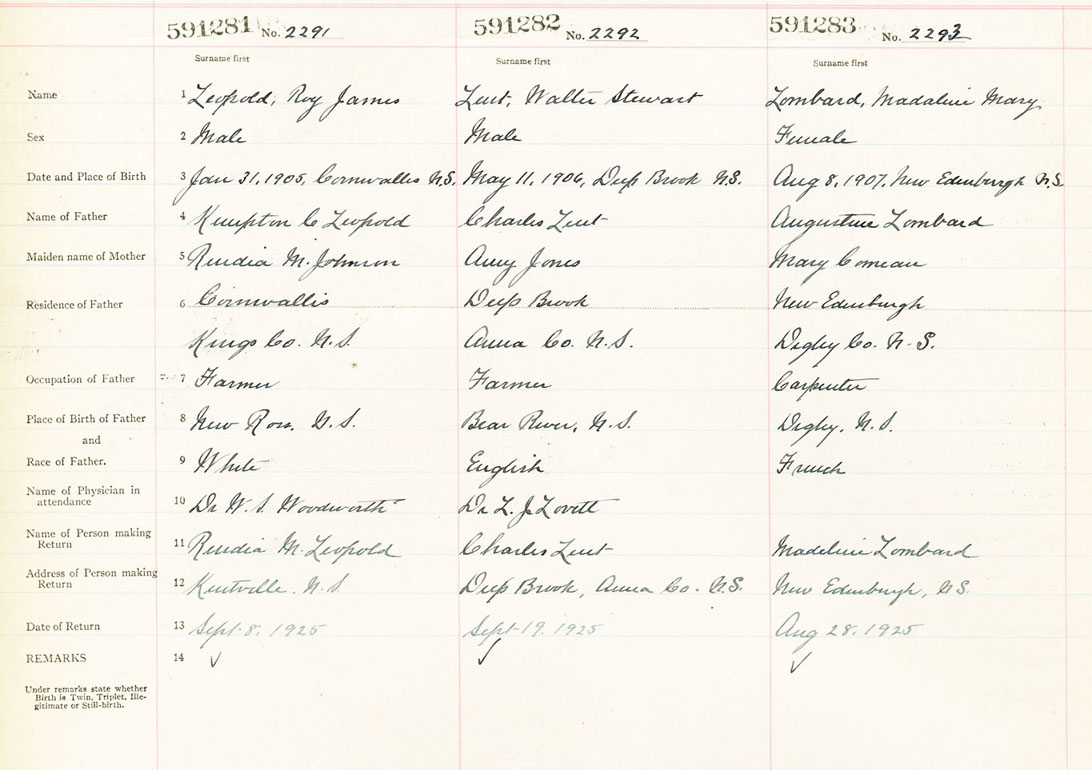 591281 No. 2291 591282 No. 2292 591283 No. 2293
Surname first Surname first Surname first
Name 1 Leopold, Roy James Lent, Walter Stewart Lombard, Madaline Mary
Sex 2 Male Male Female
Date and Place of Birth 3 Jan 31, 1905, Cornwallis N.S. May 11, 1906, Deep Brook N.S. Aug 8, 1907, New Edinburgh N.S.
Name of Father 4 Kempton C Leopold Charles Lent Augustine Lombard
Maiden name of Mother 5 M. Johnson Amy Jones Mary Comeau
Residence of Father 6 Cornwallis Deep Brook New Edinburgh
Kings Co. N.S Anna Co. N.S. Digby Co. N.S.
Occupation of Father 7 Farmer Farmer Carpenter
Place of Birth of Father 8 New Ross, N.S. Bear River, N.S. Digby, N.S.
and
Race of Father. 9 White English French
Name of Physician in
attendance 10 Dr W. S. Woodworth Dr L. J. Lovett
Name of Person making
Return 11 M. Leopold Charles Lent Madeline Lombard
Address of Person making
Return 12 Kentville, N.S. Deep Brook, Anna Co. N.S. New Edinburgh, N.S.
Date of Return 13 Sept. 8. 1925 Sept 19. 1925 Aug 28. 1925
REMARKS 14 ✓ ✓ ✓
Under remarks state whether
Birth is Twin, Triplet, Ille-
gitimate or Still-birth.